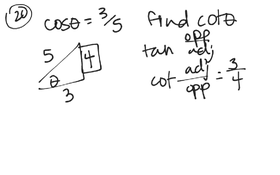 20 cosθ = 3/5 find cotθ
5 4 θ 3
tan opp/adj
cot adj/opp = 3/4